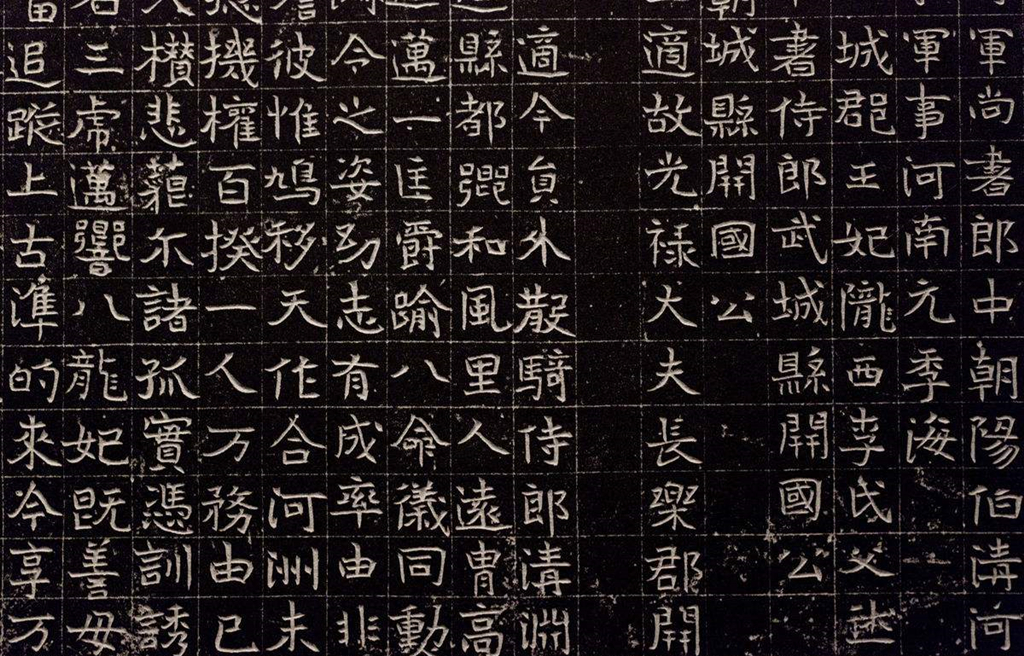 軍尚書郎中朝陽伯清河
軍事河南元季海
城郡王妃隴西李氏父
書侍郎武城縣開國公
朝城縣開國公
適故光祿大夫長樂郡開
適今員外散騎侍郎清淵
縣都鄉和風里人遠冑高
萬一匡爵踰八命儀同動
令之姿幼志有成率由非
彼惟鳩移天作合河洲未
機權百揆一人万務由已
欑悲藐尒諸孤實憑訓誘
三虎邁響八龍妃既善母
追蹤上古準的來今享万